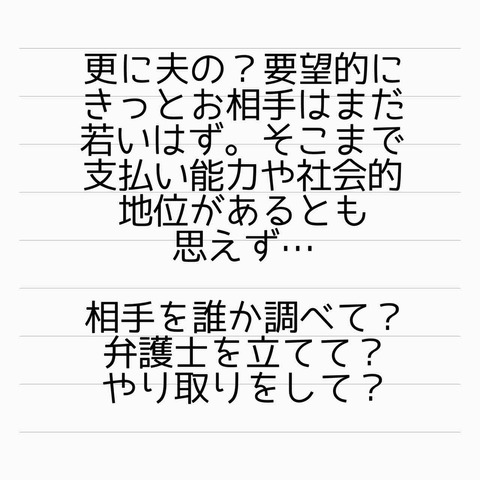 更に夫の？要望的に
きっとお相手はまだ
若いはず。そこまで
支払い能力や社会的
地位があるとも
思えず…
相手を誰か調べて？
弁護士を立てて？
やり取りをして？